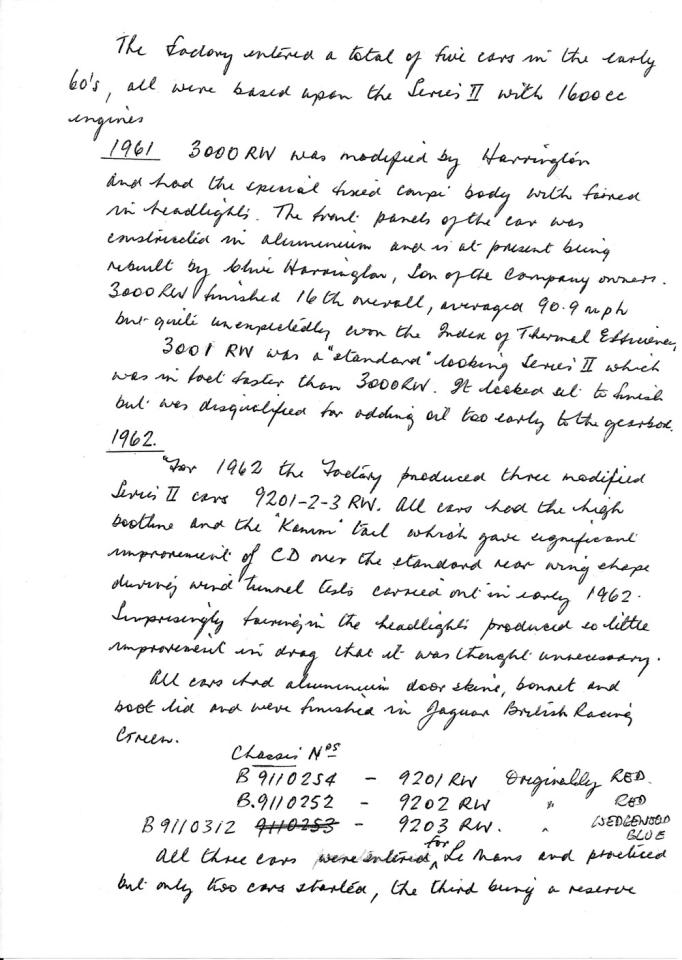 The Factory entered a total of five cars in the early
60's, all were based upon the Series II with 1600cc
engines
1961 3000 RW was modified by Harrington
and had the special fixed coupé body with faired
in headlights. The front panels of the car was
constructed in aluminium and is at present being
rebuilt by Clive Harrington, Son of the Company owners.
3000 RW finished 16th overall, averaged 90.9 mph
but quite unexpectedly won the Index of Thermal Efficiency,
3001 RW was a "standard" looking Series II which
was in fact faster than 3000RW. It looked set to finish
but was disqualified for adding oil too early to the gearbox.
1962.
For 1962 the Factory produced three modified
Series II cars 9201-2-3 RW. All cars had the high
bootline and the "Kamm" tail which gave significant
improvement of CD over the standard rear wing shape
during wind tunnel tests carried out in early 1962.
Surprisingly fairing in the headlights produced so little
improvement in drag that it was thought unnecessary.
All cars had aluminium door skins, bonnet and
boot lid and were finished in Jaguar British Racing
Green.
Chassis Nos
B 9110254 - 9201 RW Originally RED.
B.9110252 - 9202 RW " RED
B9110312 9110253 - 9203 RW. " WEDGEWOOD
BLUE
All three cars were entered for Le Mans and practiced
but only two cars started, the third being a reserve